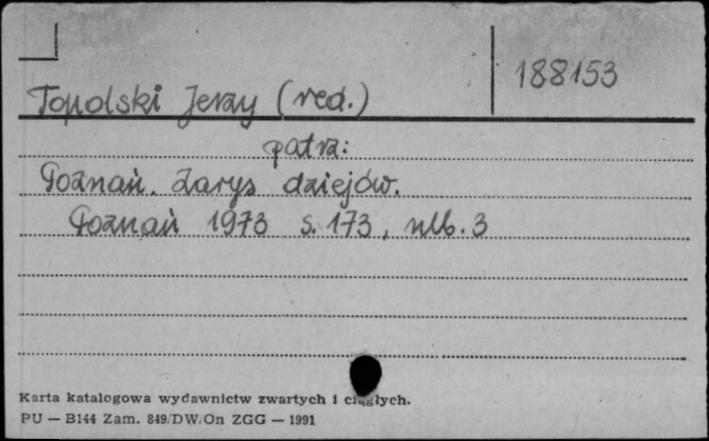 188153
Topolski Jerzy (red.)
patrz:
Poznań. Zarys dziejów.
Poznań 1973 s. 173, nlb. 3
Karta katalogowa wydawnictw zwartych i ciągłych.
PU — B144 Zam. 849/DW/On ZGG — 1991